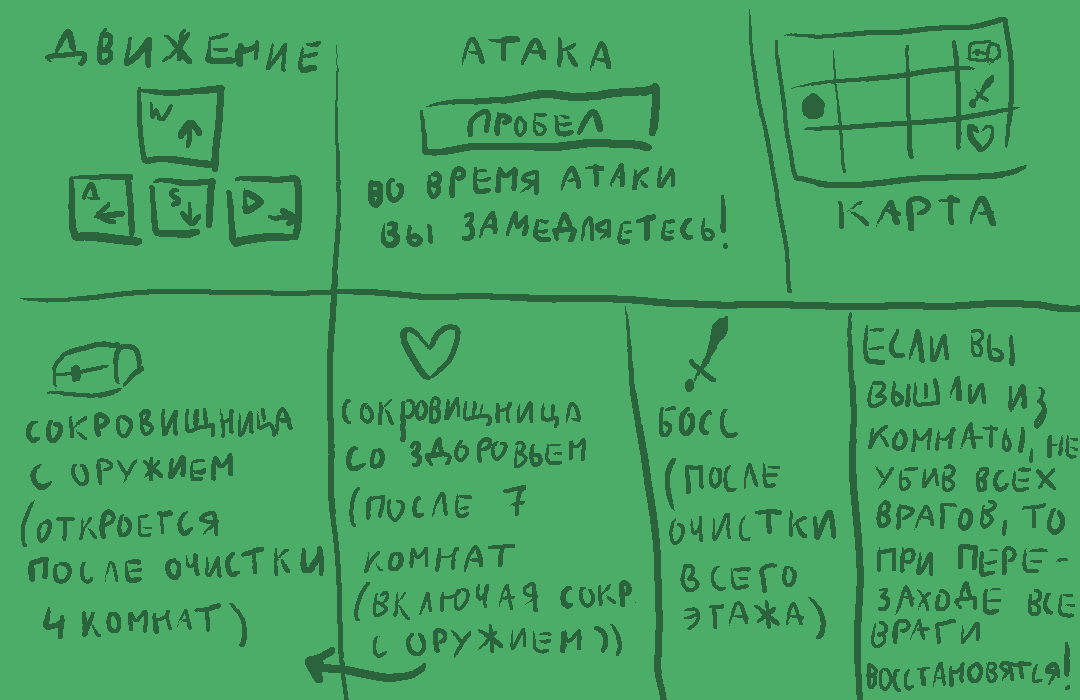 ДВИЖЕНИЕ
W
A
S
D
АТАКА
ПРОБЕЛ
ВО ВРЕМЯ АТАКИ
ВЫ ЗАМЕДЛЯЕТЕСЬ!
КАРТА
СОКРОВИЩНИЦА
С ОРУЖИЕМ
(ОТКРОЕТСЯ
ПОСЛЕ ОЧИСТКИ
4 КОМНАТ)
СОКРОВИЩНИЦА
СО ЗДОРОВЬЕМ
(ПОСЛЕ 7
КОМНАТ
(ВКЛЮЧАЯ СОКР.
С ОРУЖИЕМ))
БОСС
(ПОСЛЕ
ОЧИСТКИ
ВСЕГО
ЭТАЖА)
ЕСЛИ ВЫ
ВЫШЛИ ИЗ
КОМНАТЫ, НЕ
УБИВ ВСЕХ
ВРАГОВ, ТО
ПРИ ПЕРЕ-
ЗАХОДЕ ВСЕ
ВРАГИ
ВОССТАНОВЯТСЯ!